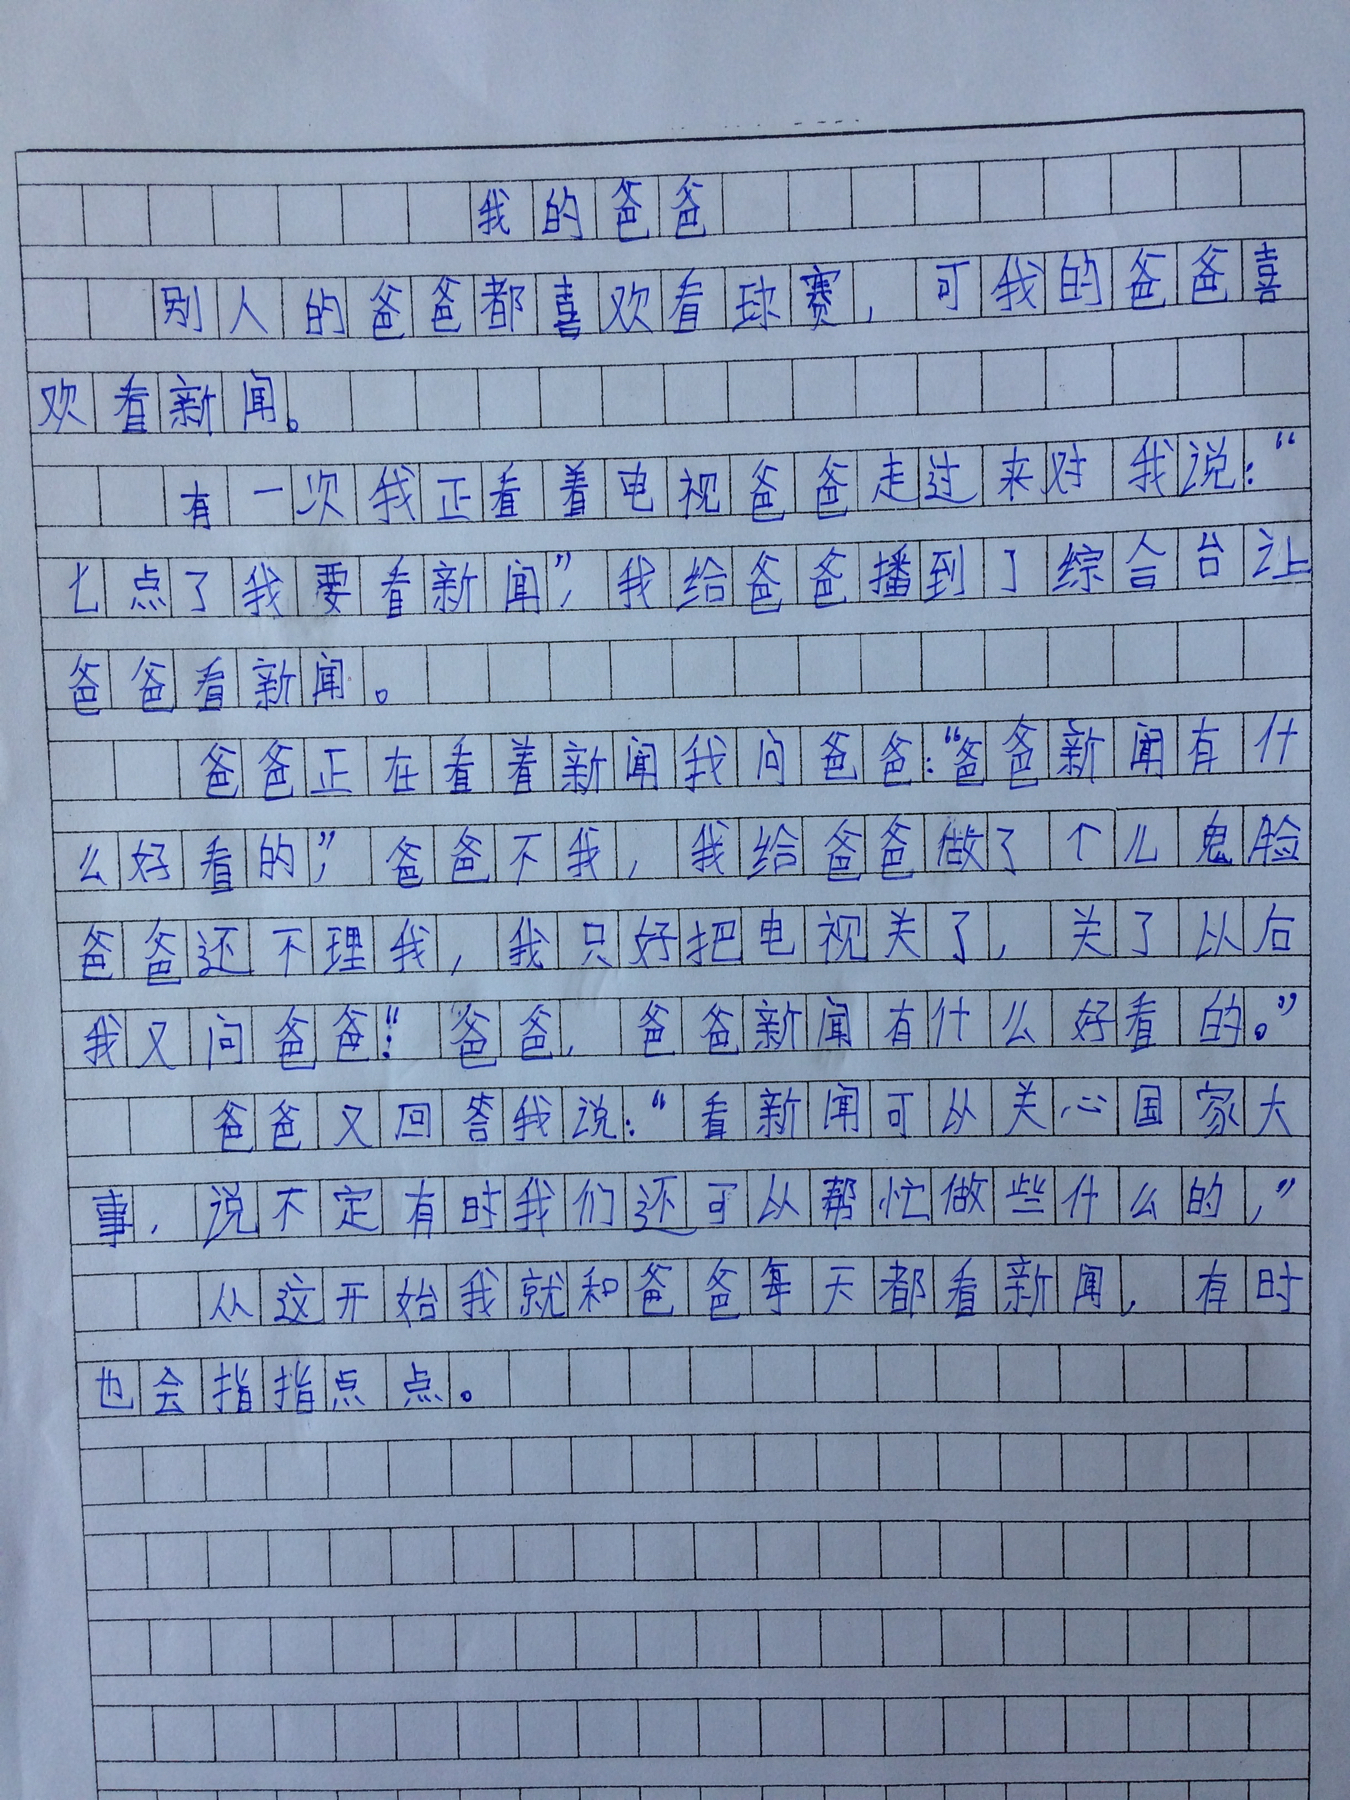 我的爸爸
别人的爸爸都喜欢看球赛，可我的爸爸喜
欢看新闻。
有一次我正看着电视爸爸走过来对我说：“
七点了我要看新闻”，我给爸爸播到了综合台让
爸爸看新闻。
爸爸正在看着新闻我问爸爸：“爸爸新闻有什
么好看的”，爸爸不我，我给爸爸做了个儿鬼脸
爸爸还不理我，我只好把电视关了，关了以后
我又问爸爸：“爸爸，爸爸新闻有什么好看的。”
爸爸又回答我说：“看新闻可以关心国家大
事，说不定有时我们还可以帮忙做些什么的，”
从这开始我就和爸爸每天都看新闻，有时
也会指指点点。